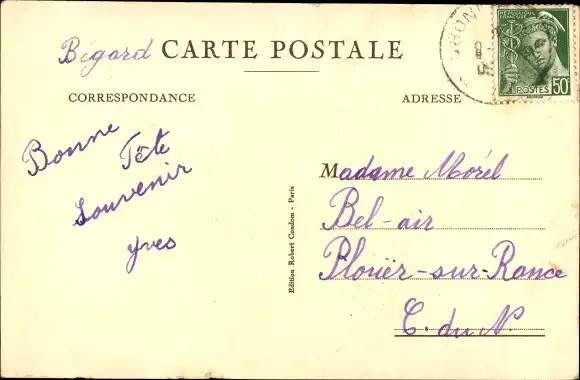 Bégard CARTE POSTALE
CORRESPONDANCE
ADRESSE
RÉPUBLIQUE FRANÇAISE
POSTES 50
Bonne Fête
Souvenir
Yves
Edition Robert Coudom - Paris
Madame Morel
Bel-air
Plouër-sur-Rance
C. du N.